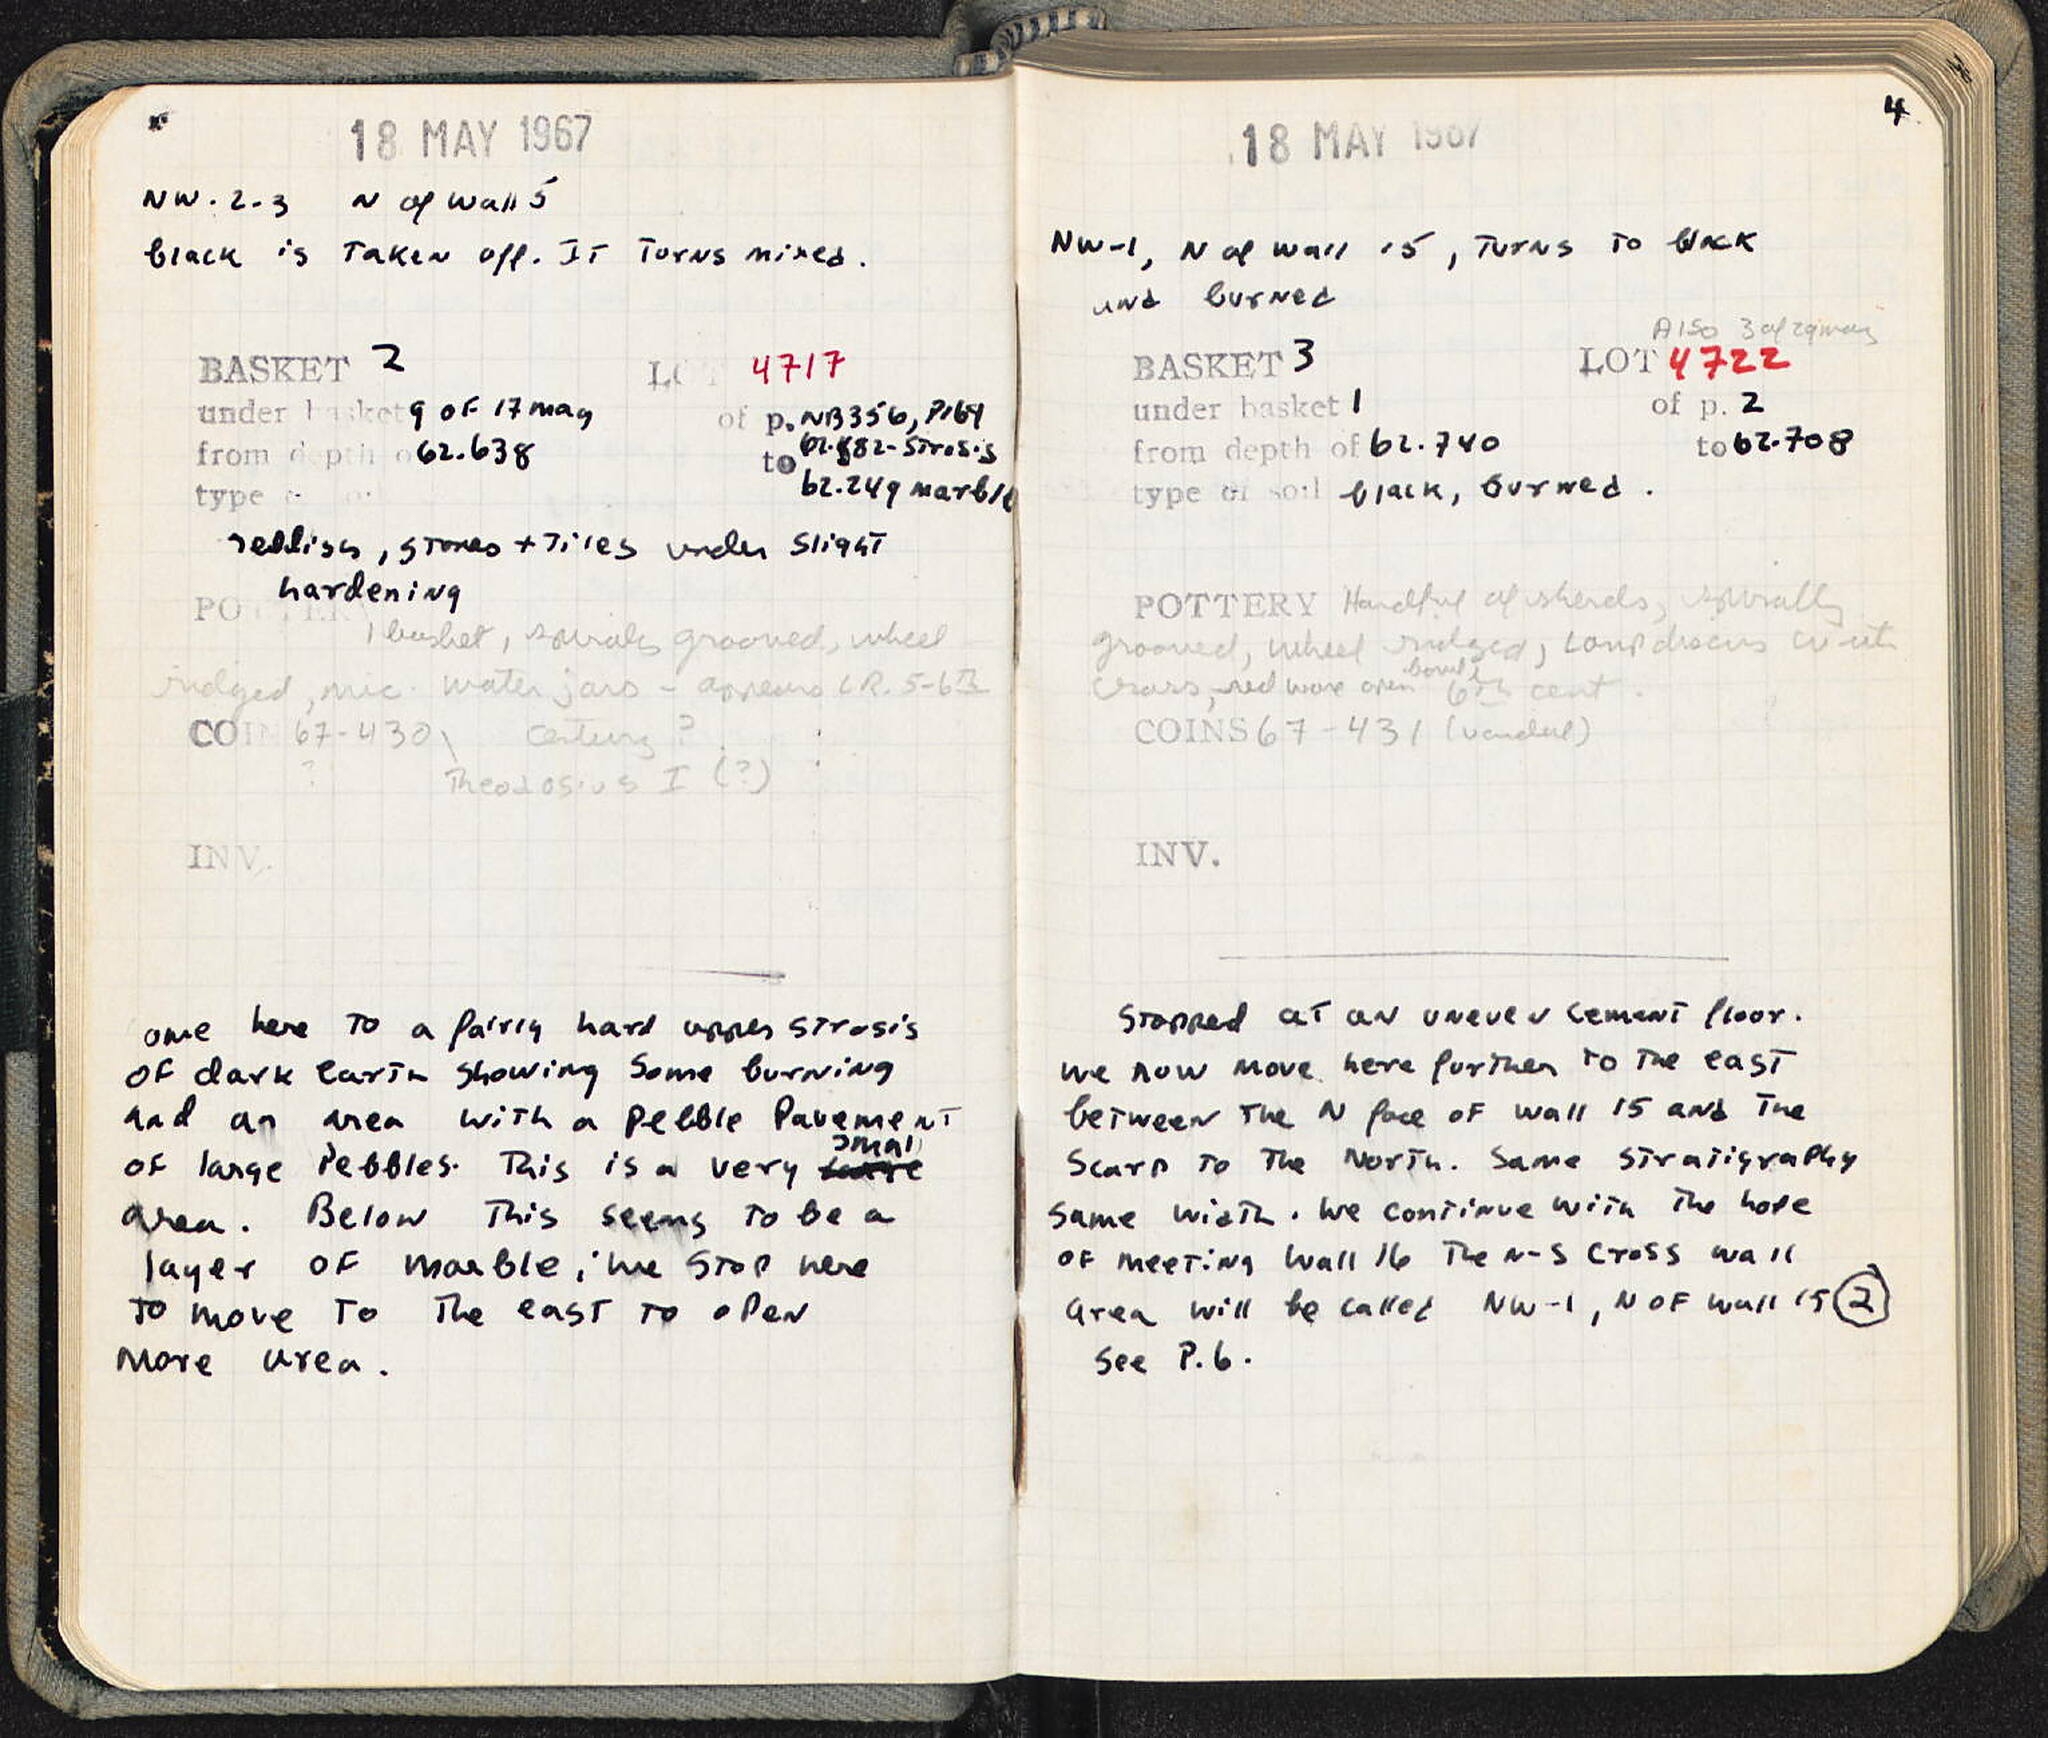 18 MAY 1967
NW. 2-3 N of Wall 5
black is taken off. It turns mixed.
BASKET 2 LOT 4717
under basket 9 of 17 may of p. NB356, P164
from depth o 62.638 62.582 - strosis
to
type 62.249 marble
reddish, stones + tiles under slight
hardening
POTTERY
1 basket, spirally grooved, wheel
ridged, mic. water jars - appears LR. 5-6th
COIN 67-430 century ?
? Theodosius I (?)
INV.
ome here to a fairly hard upper strosis
of dark earth showing some burning
and an area with a pebble pavement
small
of large pebbles. This is a very
area. Below this seems to be a
layer of marble; we stop here
to move to the east to open
more area.
4
18 MAY 1967
NW-1, N of wall 15, turns to black
and burned
Also 3 of 29 may
BASKET 3 LOT 4722
under basket 1 of p. 2
from depth of 62.740 to 62.708
type of soil black, burned.
POTTERY Handful of sherds, spirally
grooved, wheel ridged, Lamp discus with
bowl
cross, red ware open 6th cent.
COINS 67-431 (vandal)
INV.
Stopped at an uneven cement floor.
we now move here further to the east
between the N face of wall 15 and the
scarp to the North. Same stratigraphy
same width. We continue with the hope
of meeting wall 16 the N-S cross wall
area will be called NW-1, N of wall 15 2
see P.6.